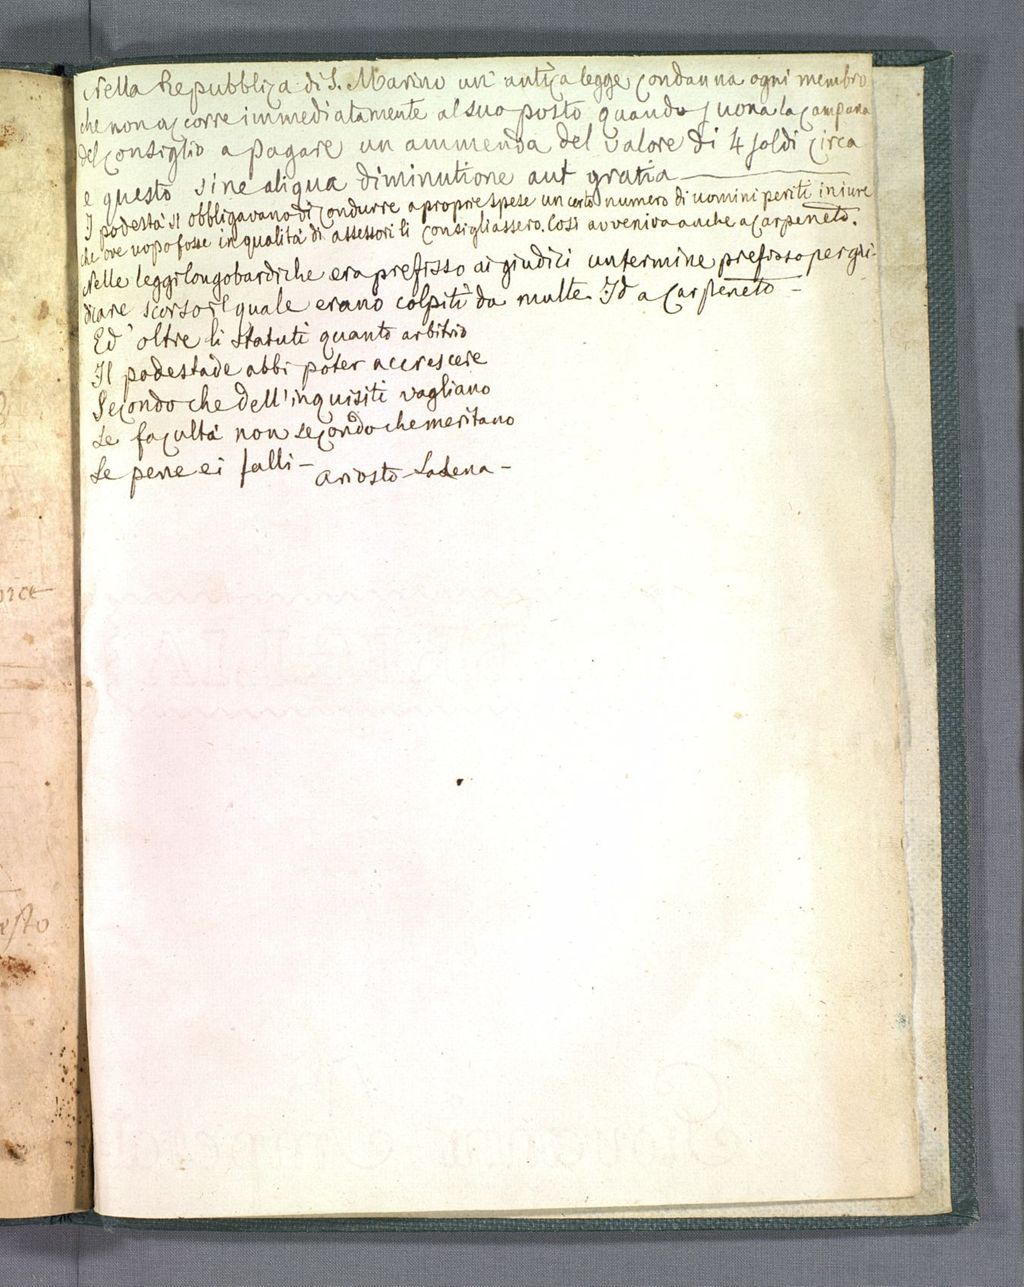 Nella Repubblica di S. Marino un' antica legge condanna ogni membro
che non accorre immediatamente al suo posto quando suona la campana
del consiglio a pagare un ammenda del valore di 4 soldi circa
e questo sine aliqua diminutione aut gratia
I podestà si obbligavano di condurre a proprie spese un certo numero di uomini periti in iure
che ove uopo fosse in qualità di assessori li consigliassero. Così avveniva anche a Carpeneto.
Nelle leggi longobardiche era prefisso ai giudici un termine prefisso per giu-
dicare scorso il quale erano colpiti da multe. Id a Carpeneto -
Ed oltre li statuti quanto arbitrio
Il podestade abbi poter accrescere
Secondo che dell'inquisiti vagliano
Le facultà non secondo che meritano
Le pene ei falli -
Ariosto La Lena -
orce
esto